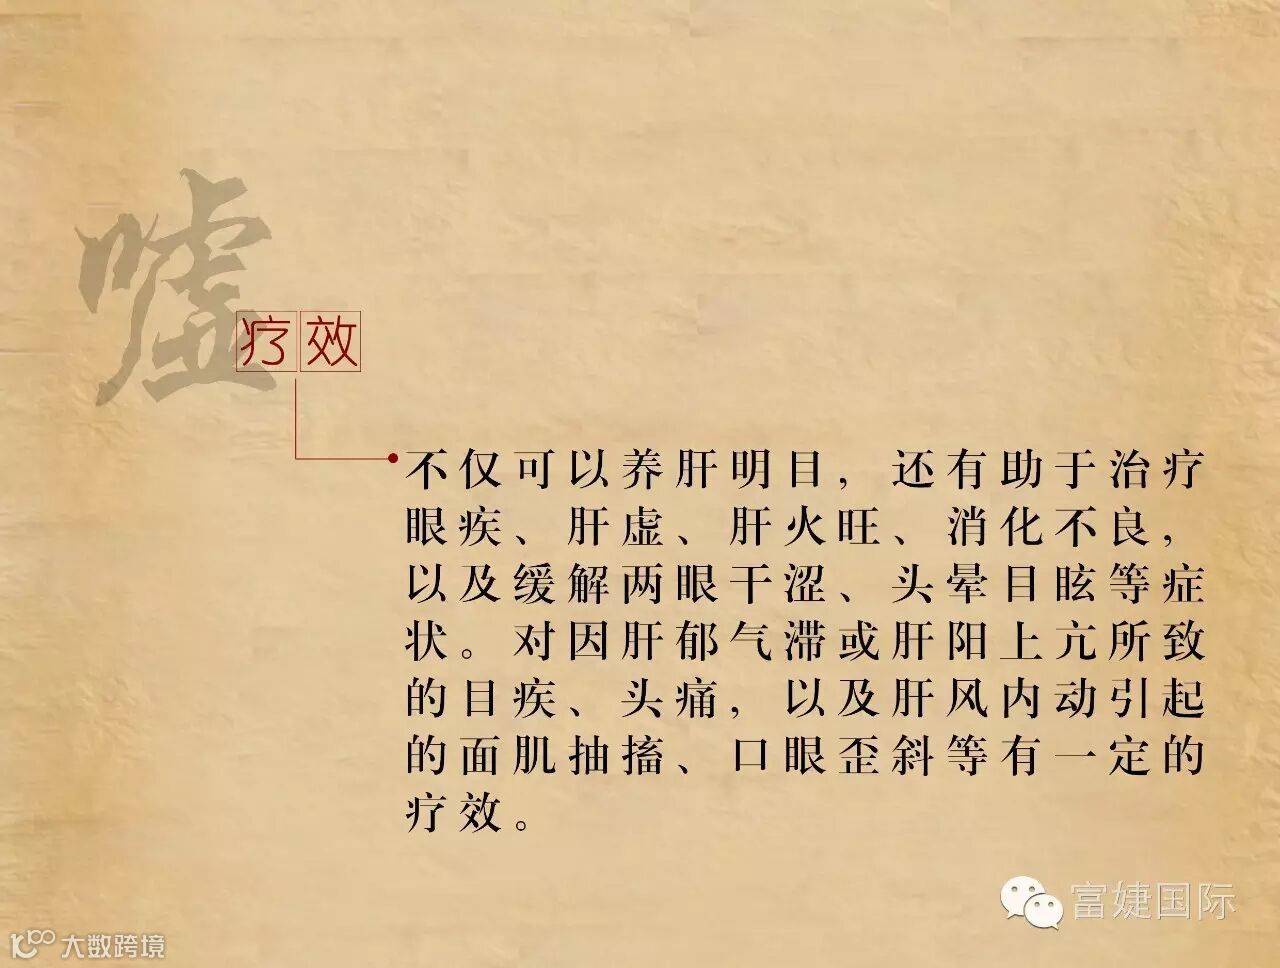 嘘
疗效
不仅可以养肝明目，还有助于治疗
眼疾、肝虚、肝火旺、消化不良，
以及缓解两眼干涩、头晕目眩等症
状。对因肝郁气滞或肝阳上亢所致
的目疾、头痛，以及肝风内动引起
的面肌抽搐、口眼歪斜等有一定的
疗效。
富婕国际
大数跨境